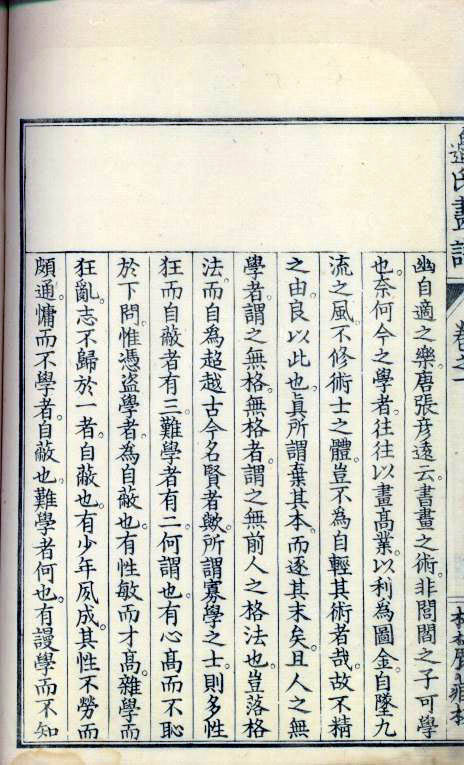 氏畫譜 卷之一
幽自適之樂。唐張彥遠云。書畫之術。非閭閻之子可學
也。奈何今之學者。往往以畫高業。以利為圖金。自墜九
流之風。不修術士之體。豈不為自輕其術者哉。故不精
之由良以此也。眞所謂棄其本。而逐其末矣。且人之無
學者。謂之無格。無格者。謂之無前人之格法也。豈落格
法。而自為超越古今名賢者歟。所謂寡學之士。則多性
狂而自蔽者有三。難學者有二。何謂也。有心高而不恥
於下問。惟憑盜學者。為自蔽也。有性敏而才高。雜學而
狂亂。志不歸於一者。自蔽也。有少年夙成。其性不勞而
頗通。慵而不學者。自蔽也。難學者何也。有謾學而不知